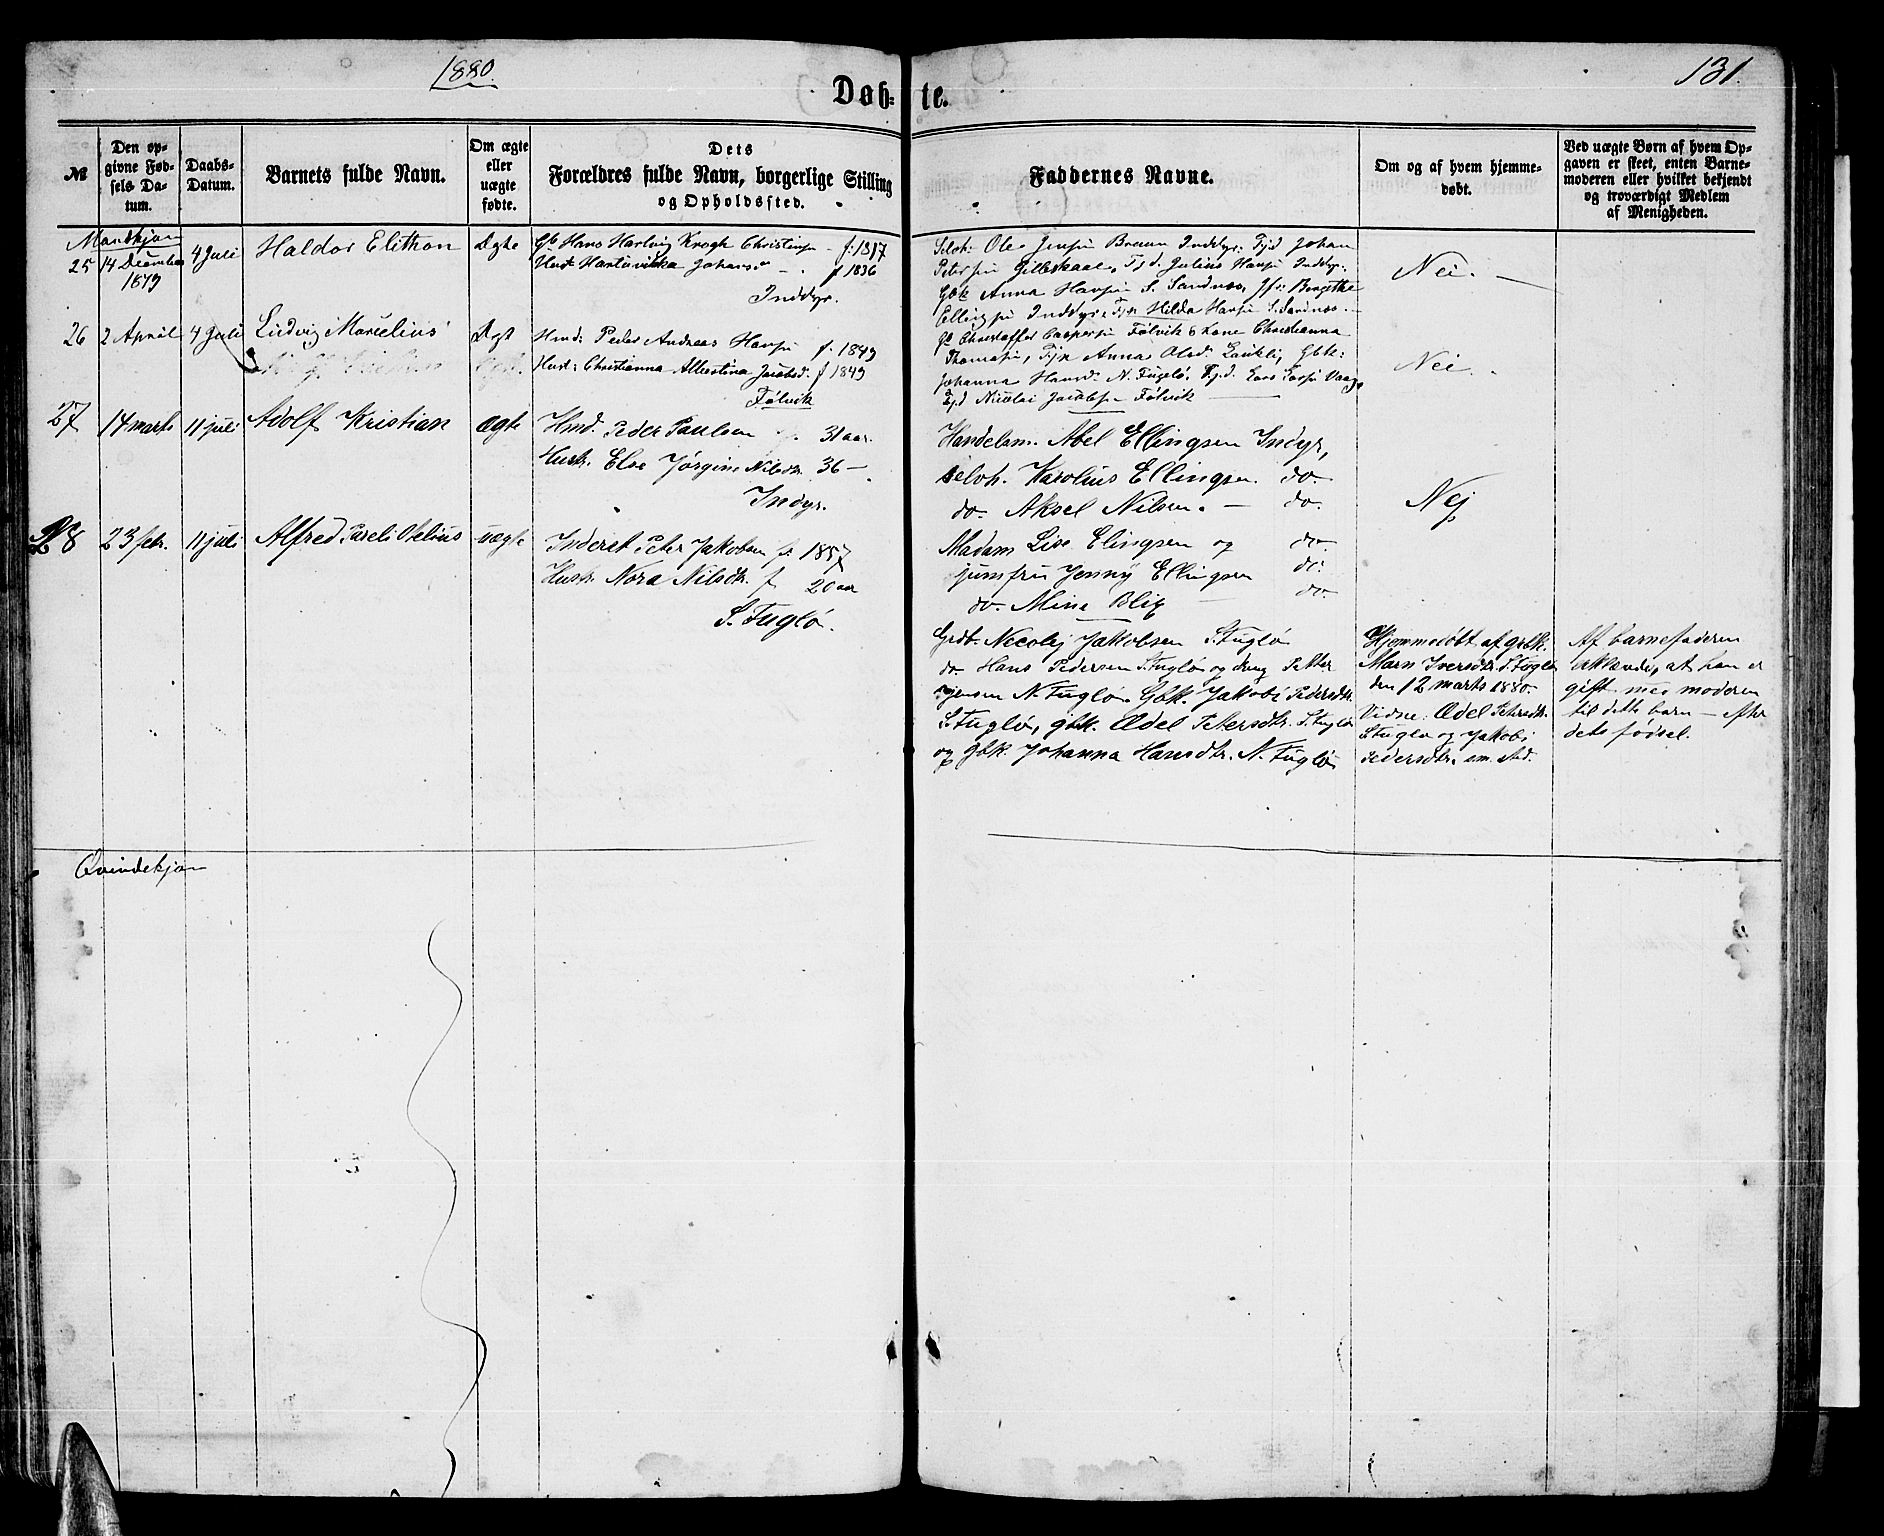 1880.
131.
Døb-te.
№
Den op-
givne Fød-
sels Da-
tum.
Daabs-
Datum.
Barnets fulde Navn.
Om ægte
eller
uægte
fødte.
Dets
Forældres fulde Navn, borgerlige Stilling
og Opholdssted.
Faddernes Navne.
Om og af hvem hjemme-
døbt.
Ved uægte Børn af hvem Op-
gaven er skeet, enten Barne-
moderen eller hvilket bekjendt
og troværdigt Medlem
af Menigheden.
Mandkjøn
25
14 December
1879
4 Juli
Haldor Elithon
Ægte
Gb Hans Hartvig Krogh Christensen f. 1817
Hust Hartvikka Johans f 1836
Inddyr.
Selvh. Ole Jensen Breum Inddyr. Tjd Johan
Petersen Gilleskaal, Tjd. Julius Hansen Inddyr.
Gbk Anna Hansen S. Sandnæs, Jfr Bergitthe
Ellingsen Inddyr, Tjn Hilda Hansen S. Sandnæs.
Nei.
26
2 April
4 Juli
Ludvig Marcelius
Ægt
Hmd: Peder Andreas Hansen f. 1849
Hust: Christianna Albertina Jacobsd. f 1849
Følvik
Gb Christoffer Caspersen Følvik & Kone Christianna
Thomasen, Tjn Anna Olsd. Laukli, Gbk:
Johanna Hansd. N. Fugelø. Tjd. Lars Larsen Vaag,
Tjd Nicolai Jacobsen Følvik
Nei.
27
14 marts
11 juli
Adolf Kristian
ægte
Hmd. Peder Paulsen 31 aar.
Hustr. Else Jørgine Nilsdtr. 36 —
Indyr.
Handelsm. Abel Ellingsen Indyr,
selvh. Karolius Ellingsen do.
do. Aksel Nilsen. — do.
Madam Lise Elingsen og do.
jumfru Jenny Ellingsen do.
do. Mine Blix — do.
Nej
28
23 febr.
11 juli
Alfred Pareli Otelius
uægte
Inderst Peter Jakobsen f. 1857
Hustr. Nora Nilsdtr. f 20 aar
S. Fuglø.
Grdb. Necolej Jakobsen S. Fuglø
do. Hans Pedersen S. Fuglø og dreng Petter
Jensen N. Fuglø. Gbk. Jakobi Pedersdtr.
S. Fuglø, gbk. Ædel Petersdtr. S. Fuglø
og Gbk. Johanna Hansdtr. N. Fuglø
Hjemmedøbt af grbk.
Marn Iversdtr. S. Fuglø
den 12 marts 1880.
Vidne: Ædel Petersdtr.
S. Fuglø og Jakobi
Pedersdtr. sm. sted.
Af barnefaderen
erklæredes, at han er
gift med moderen
til dette barn — efter
dets fødsel.
Qvindekjøn